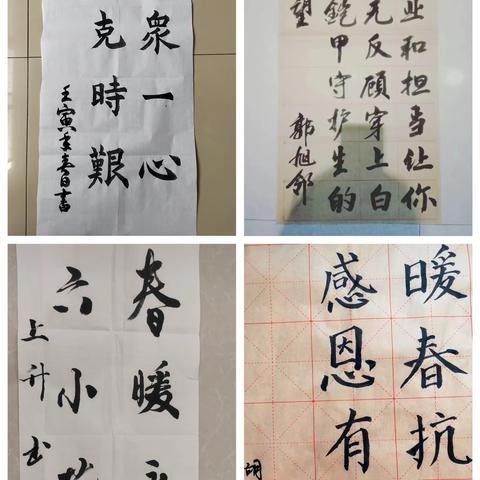 衆一心
克時艱
壬寅年春日書
业和担当让你
无反顾穿上白
铠甲守护生的
望
郭旭邻
春暖
六小
上升书
暖春抗
感恩有
胡